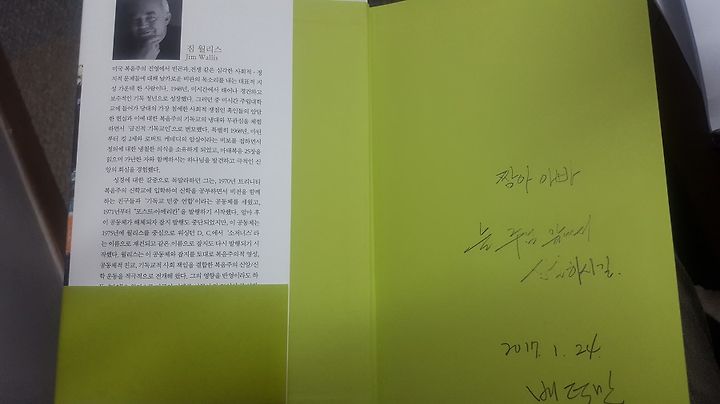 짐 월리스
Jim Wallis
미국 복음주의 진영에서 빈곤과 전쟁 같은 심각한 사회적·정
치적 문제들에 대해 날카로운 비판의 목소리를 내는 대표적 지
성 가운데 한 사람이다. 1948년, 미시간에서 태어나 경건하고
보수적인 기독 청년으로 성장했다. 그러던 중 미시간 주립대학
교에 들어가 당대의 가장 첨예한 사회적 쟁점인 흑인들의 암담
한 현실과 이에 대한 복음주의 기독교의 냉대와 무관심을 체험
하면서 '급진적 기독교인'으로 변모했다. 특별히 1968년, 마틴
루터 킹 2세와 로버트 케네디의 암살이라는 비보를 접하면서
정의에 대한 냉철한 의식을 소유하게 되었고, 마태복음 25장을
읽으며 가난한 자와 함께하시는 하나님을 발견하고 극적인 신
앙의 회심을 경험했다.
성경에 대한 갈증으로 목말라하던 그는, 1970년 트리니티
복음주의 신학교에 입학하여 신학을 공부하면서 비전을 함께
하는 친구들과 '기독교 민중 연합'이라는 공동체를 세웠고,
1971년부터 "포스트아메리칸"을 발행하기 시작했다. 얼마 후
이 공동체가 해체되자 잡지 발행도 중단되었지만, 이 공동체는
1975년에 월리스를 중심으로 워싱턴 D. C.에서 '소저너스'라
는 이름으로 재건되고 같은 이름으로 잡지도 다시 발행되기 시
작했다. 월리스는 이 공동체와 잡지를 토대로 복음주의적 영성,
공동체적 친교, 기독교적 사회 책임을 결합한 복음주의 신앙/신
학 운동을 적극적으로 전개해 왔다. 그의 영향을 반영이라도 하
짱아 아빠
늘 주님 앞에서
하시길.
2017. 1. 24.
배덕만